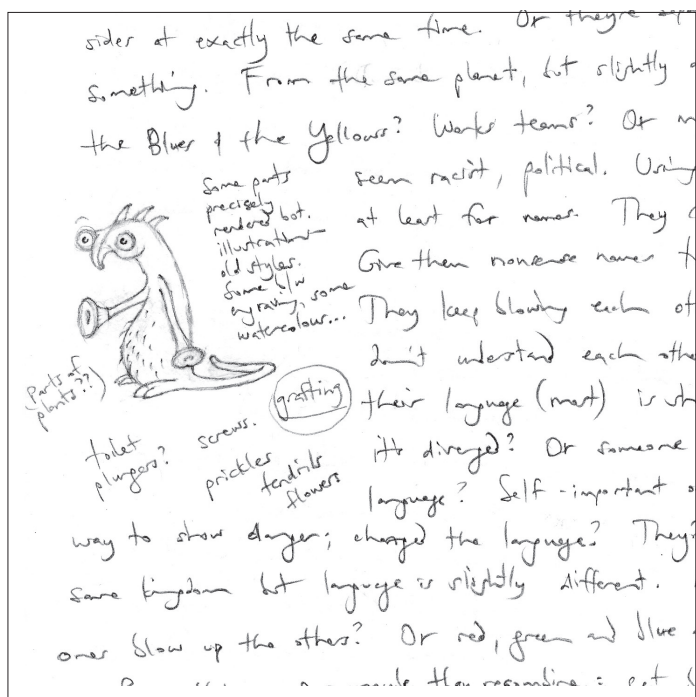 sides at exactly the same time. Or they're
something. From the same planet, but slightly
the Blues & the Yellows? Works teams? Or
seem racist, political. Using
at least for names. They
Give them nonsense names
They keep blowing each
don't understand each othe
their language (most) is
it's diverged? Or someone
language? Self-important
way to show danger; changed the language? They
same kingdom but language is slightly different.
ones blow up the others? Or red, green and blue
Some parts
precisely
rendered bot.
illustrations
old styles.
Some b/w
engraving, some
watercolour...
Parts of
plants??)
grafting
toilet
plungers?
screws.
prickles
tendrils
flowers